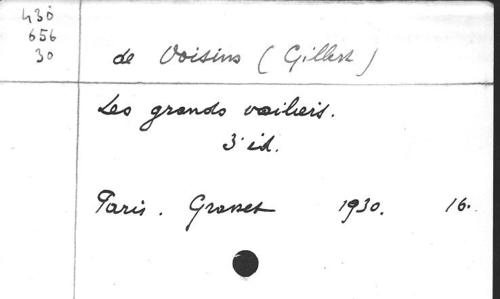 430
656
30
de Voisins (Gilbert)
Les grands voiliers.
3˙ éd.
Paris. Grasset 1930. 16.